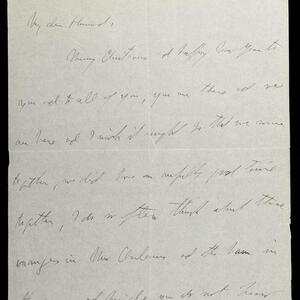 My dear Howard:
Merry Christmas and happy New Year to
you and to all of you, you are there and we
are here and I wish it might be that we were
together, we did have an awfully good time
together, I do so often think about those
evenings in New Orleans and the
in
do not